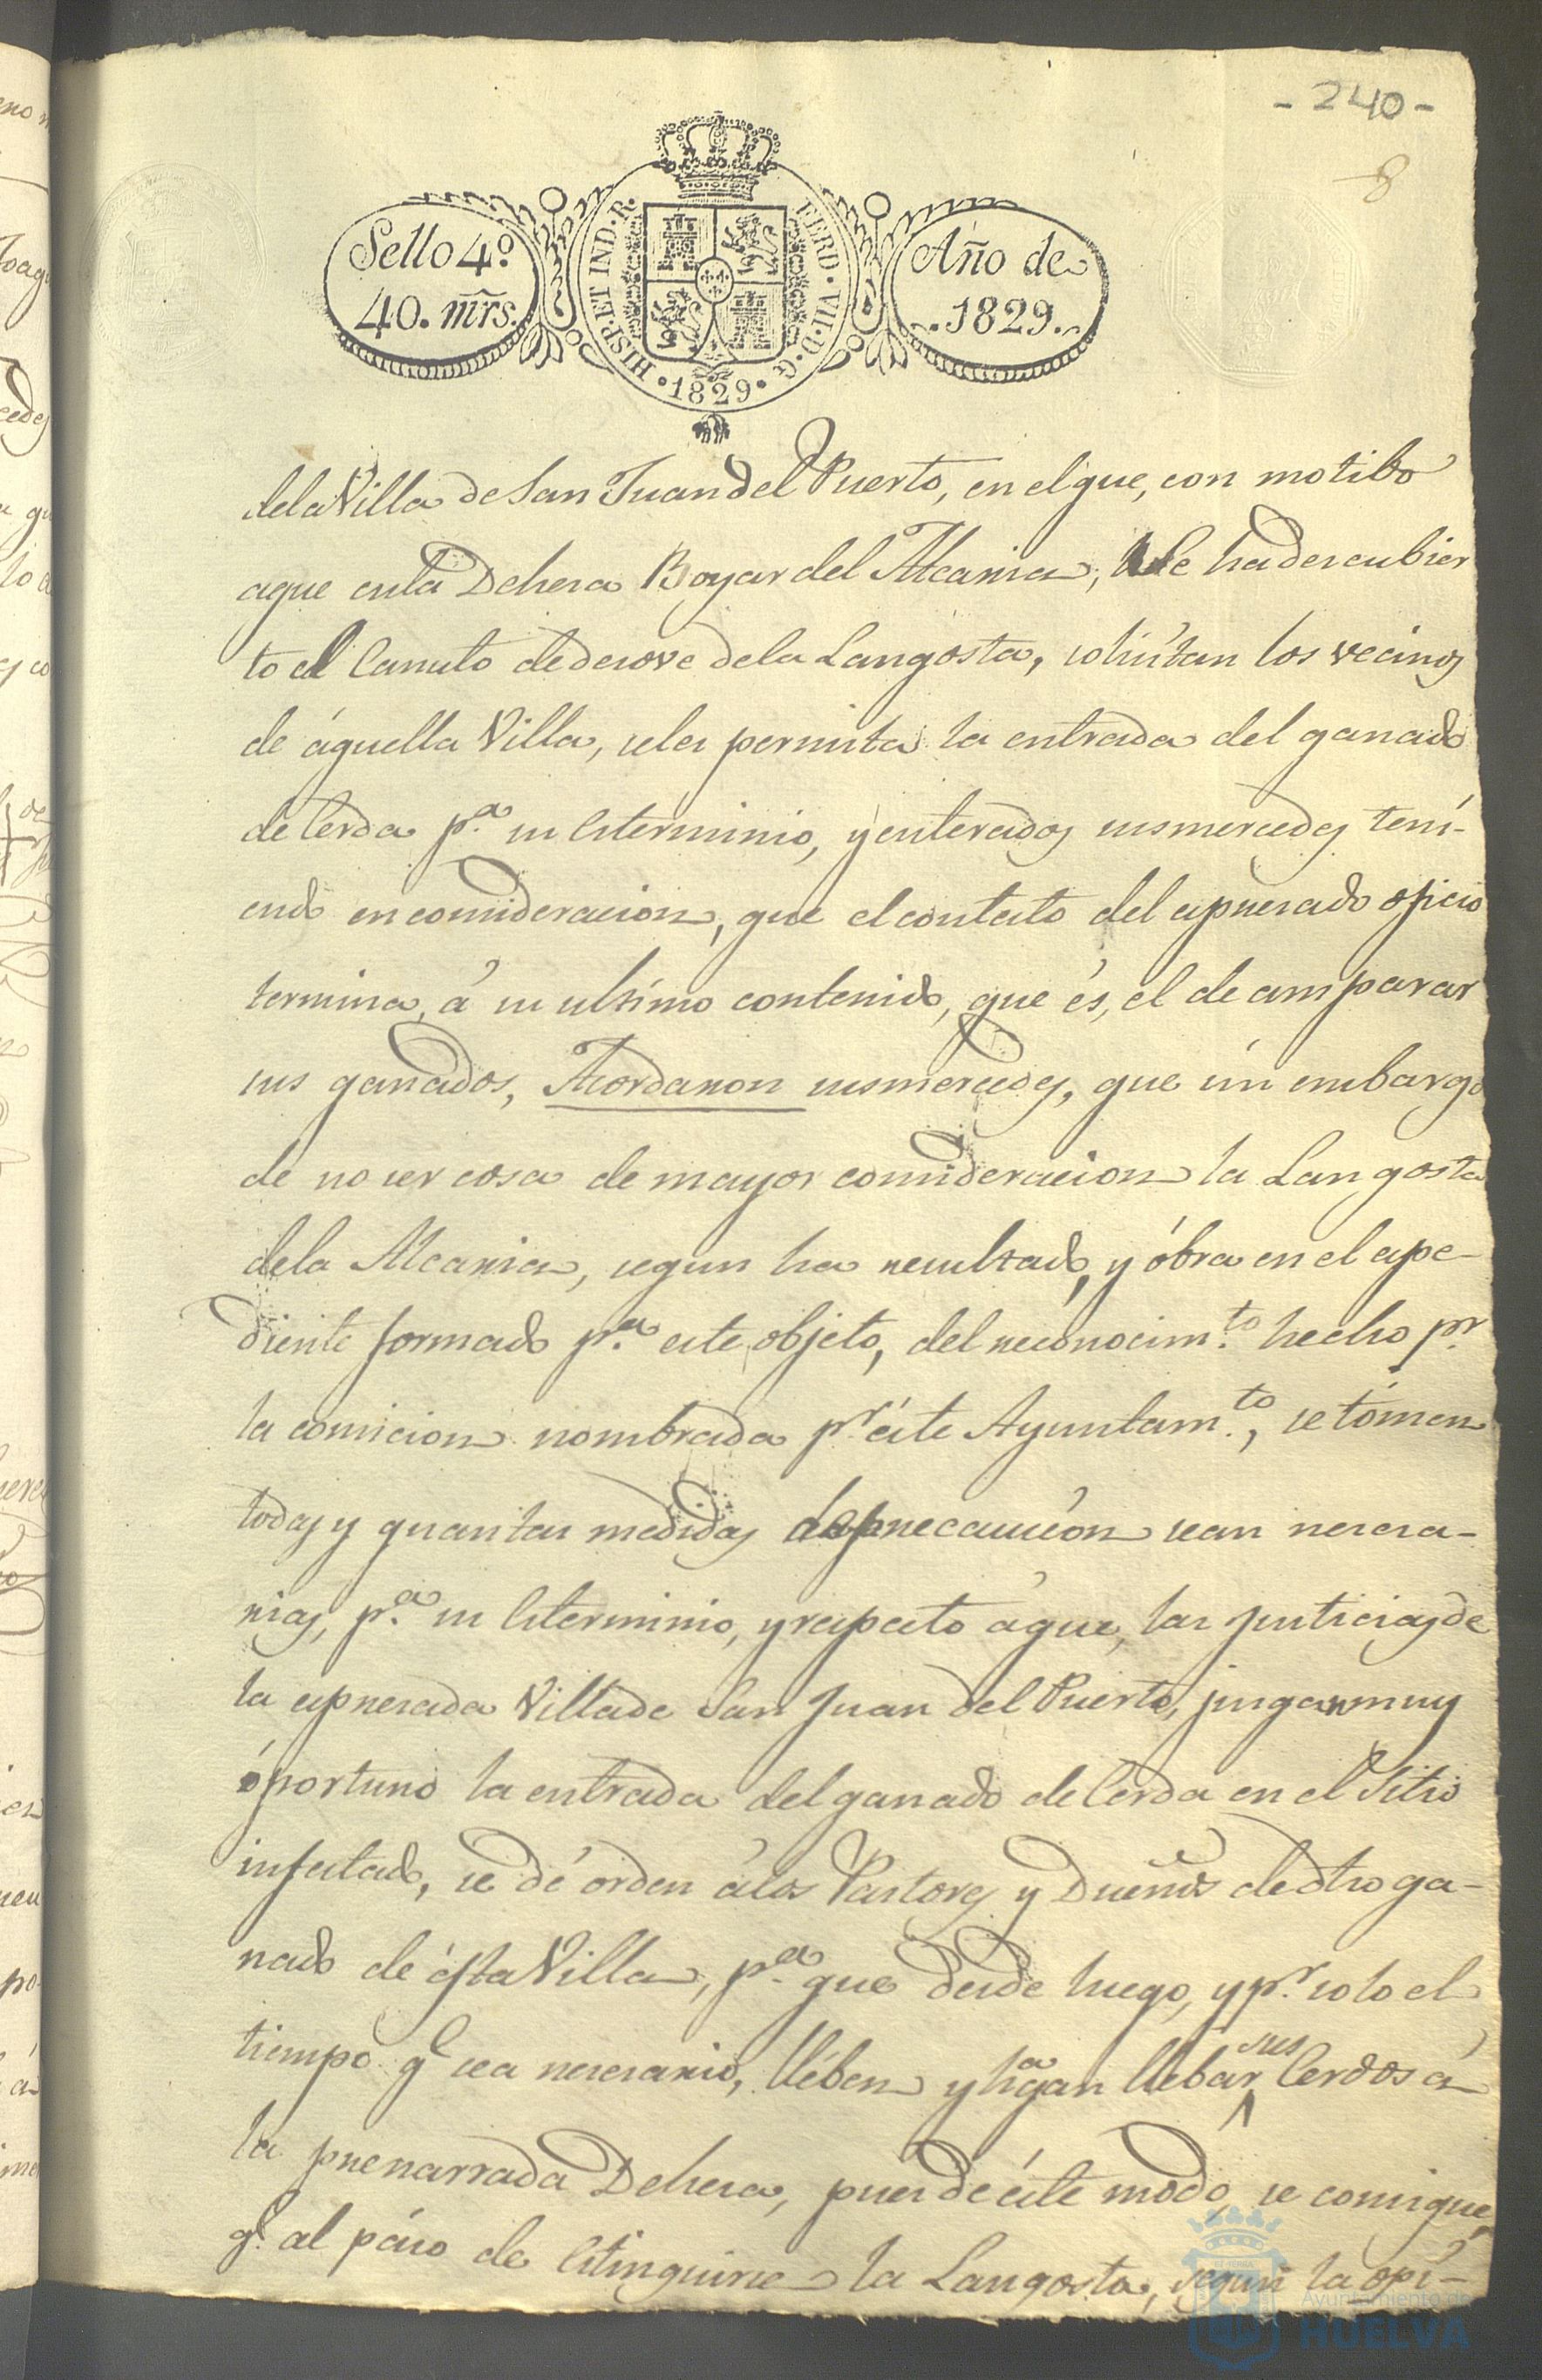 - 240 -
8
Sello 4º
40. mrs.
HISP. ET IND. R.
FERD. VII. D. G.
• 1829 •
Año de
1829.
dela Villa de San Juan del Puerto, en el que, con motibo
aque enla Dehesa Boyar del Alcarria, se ha descubier
to el Canuto de desove dela Langosta, solisítan los vecinos
de áquella Villa, seles permita la entrada del ganado
de Cerda p.ª su esterminio, y enterados susmercedes tení-
endo en consideracion, que el contesto del espresado oficio
termina, á su ultímo contenido, que és, el de amparar
sus ganados, Acordaron susmercedes, que sin embargo
de no ser cosa de mayor consideracion la Langosta
dela Alcarria, segun ha resultado, y óbra en el espe-
diente formado p.ª este objeto, del reconocim.to hecho pr
la comicion nombrada pr éste Ayuntam.to, se tómen
todas y quantas medidas de precaucion sean necesa-
rias, p.ª su esterminio, y respecto áque, las justicias de
la espresada Villa de San Juan del Puerto, jusgan muy
óportuno la entrada del ganado de Cerda en el Sitio
infestado, se dé orden álos Pastores y Dueños de dho ga-
nado de ésta Villa, p.ª que desde luego, y pr solo el
tiempo q.e sea necesario, llében y hagan llebar sus Cerdos á
la prenarrada Dehesa, pues de éste modo, se consigue,
q.e al páso de estinguirse la Langosta, segun la opi-
Ayuntamiento de
HUELVA